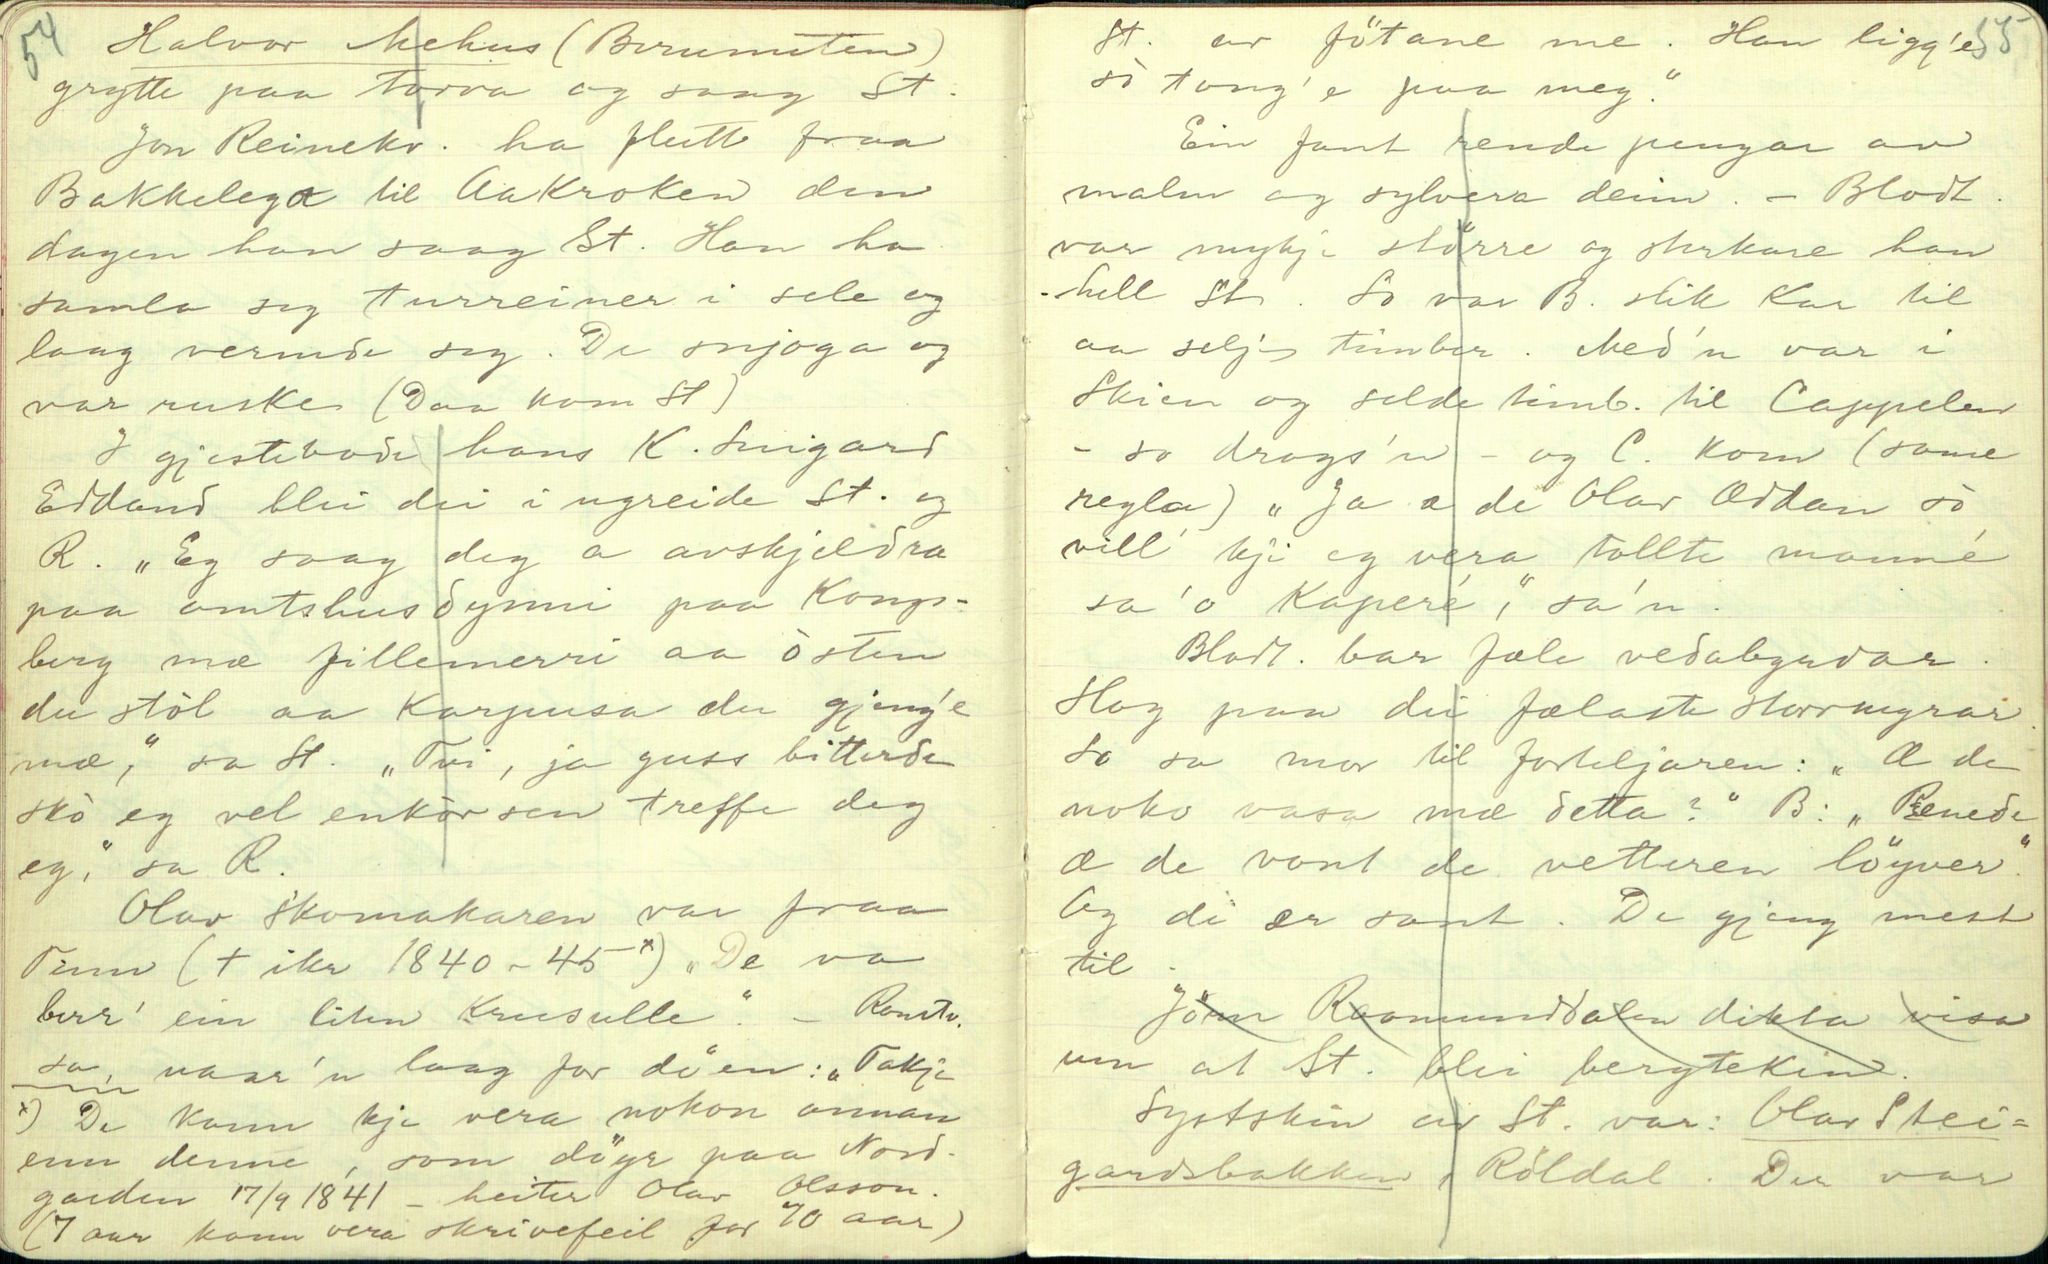 54
Halvor Mehus (Berumiten)
grytte paa torva og saag St.
Jon Reinekv. ha flutt fraa
Bakkelega til Aakroken den
dagen han saag St. Han ha
samla seg turreiner i sele og
laag vermde seg. De snjoga og
var ruske (Daa kom St)
I gjestebode hans K. Suigard
Eddand blei dei i ugreide St. og
R. "Eg saag deg a avskjeldra
paa amtshusdynni paa Kongs-
berg mæ fillemerri aa òsten
du stòl aa Karpusa du gjeng'e
mæ," sa St. "Tvi, ja guss bitterde
skò eg vel enkòrsen treffe deg
eg," sa R.
Olav Skomakaren var fraa
Tinn († ikr 1840-45 x) "De va
berr' ein liten Krusulle." - Romtv.
sa, naar'n laag for döen: "Takje
x) De kann kje vera nokon annan
enn denne, som döyr paa Nord-
garden 17/9 1841 - heiter Olav Olsson.
(7 aar kann vera skrivefeil for 70 aar)
55
St. av fötane me. Han ligg'e
sò tong'e paa meg."
Ein fant rende pengar av
malm og sylvera deim. - Blodt.
var mykje större og sterkare han
hell St. So var B. slik Kar til
aa selje timber. Med'n var i
Skien og selde timb. til Cappelen
- so drogs'n - og C. kom (same
regla) "Ja æ de Olav Øddan sò
vill' kji eg vera tollte manné
sa'o Kaperé," sa'n.
Blodt. bar fæle vedabyrdar.
Slog paa dei fælaste storrmyrar.
So sa mor til forteljaren: "Æ de
noko vasa mæ detta?" B: "Renede
æ de vont de vetteren löyver."
Og di er sant. De gjeng mest
til.
Jörn Raamunddalen dikta visa
um at St. blei bergtekin.
Systskin av St. var: Olav Stei=
gardsbakken, Röldal. Der var